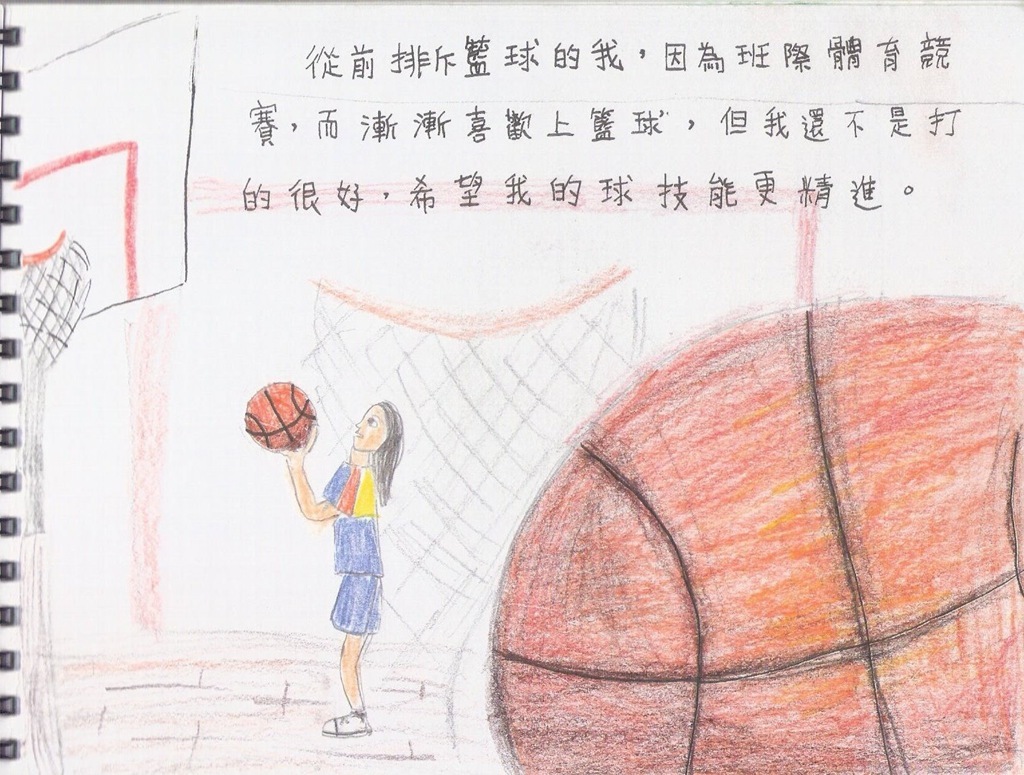 從前排斥籃球的我，因為班際體育競
賽，而漸漸喜歡上籃球，但我還不是打
的很好，希望我的球技能更精進。